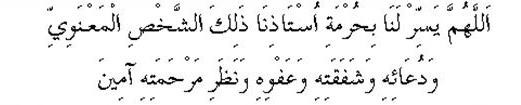 اَللّٰهُمَّ يَسِّرْ لَنَا بِحُرْمَةِ اُسْتَاذِنَا ذٰلِكَ الشَّخْصِ الْمَعْنَوِيِّ
وَدُعَائِهِ وَشَفَقَتِهِ وَعَفْوِهِ وَنَظَرِ مَرْحَمَتِهِ آمِينَ